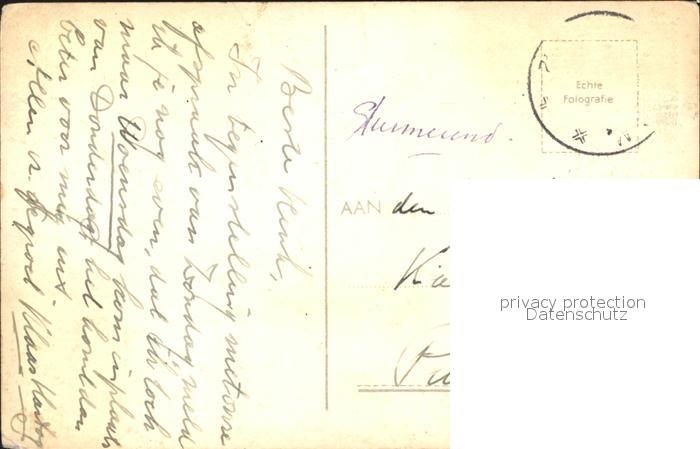 Beste Henk,
In tegenstelling met onze
afspraak van Zondag meld
ik je nog even, dat ik toch
maar Woensdag kom in plaats
van Donderdag, het komt dan
beter voor mij uit.
Allen v. gegroet Klaas Hartog
Purmerend.
Echte
Fotografie
AAN den
privacy protection
Datenschutz